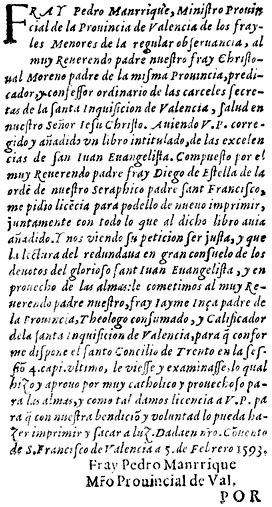 FRAY Pedro Manrrique, Ministro Prouin
cial de la Prouincia de Valencia de los fray-
les Menores de la regular obseruancia, al
muy Reuerendo padre nuestro fray Christo-
ual Moreno padre de la misma Prouincia, predi-
cador, y confessor ordinario de las carceles secre-
tas de la santa Inquisicion de Valencia, salud en
nuestro Señor Iesu Christo. Auiendo V. P. corre-
gido y añadido vn libro intitulado, de las excelen
cias de san Iuan Euangelista. Compuesto por el
muy Reuerendo padre fray Diego de Estella de la
ordẽ de nuestro Seraphico padre sant Francisco,
me pidio licẽcia para podello de nueuo imprimir,
juntamente con todo lo que al dicho libro auia
añadido. Y nos viendo su peticion ser justa, y que
la lectura del redundaua en gran consuelo de los
deuotos del glorioso sant Iuan Euangelista, y en
prouecho de las almas: le cometimos al muy Re-
uerendo padre nuestro, fray Iayme Inça padre de
la Prouincia, Theologo consumado, y Calificador
de la santa Inquisicion de Valencia, para q̃ confor
me dispone el santo Concilio de Trento en la ses-
sió 4. capi. vltimo, le viesse y examinasse, lo qual
hizo y aprouo por muy catholico y prouechoso pa-
ra las almas, y como tal damos licencia a V. P. pa-
ra q̃ con nuestra bendiciõ y voluntad lo pueda ha-
zer imprimir y sacar a luz. Dada en nro. Cõuento
de S. Francisco de Valencia a 5. de Febrero 1593,
Fray Pedro Manrrique
Mr̃o Prouincial de Val,
POR